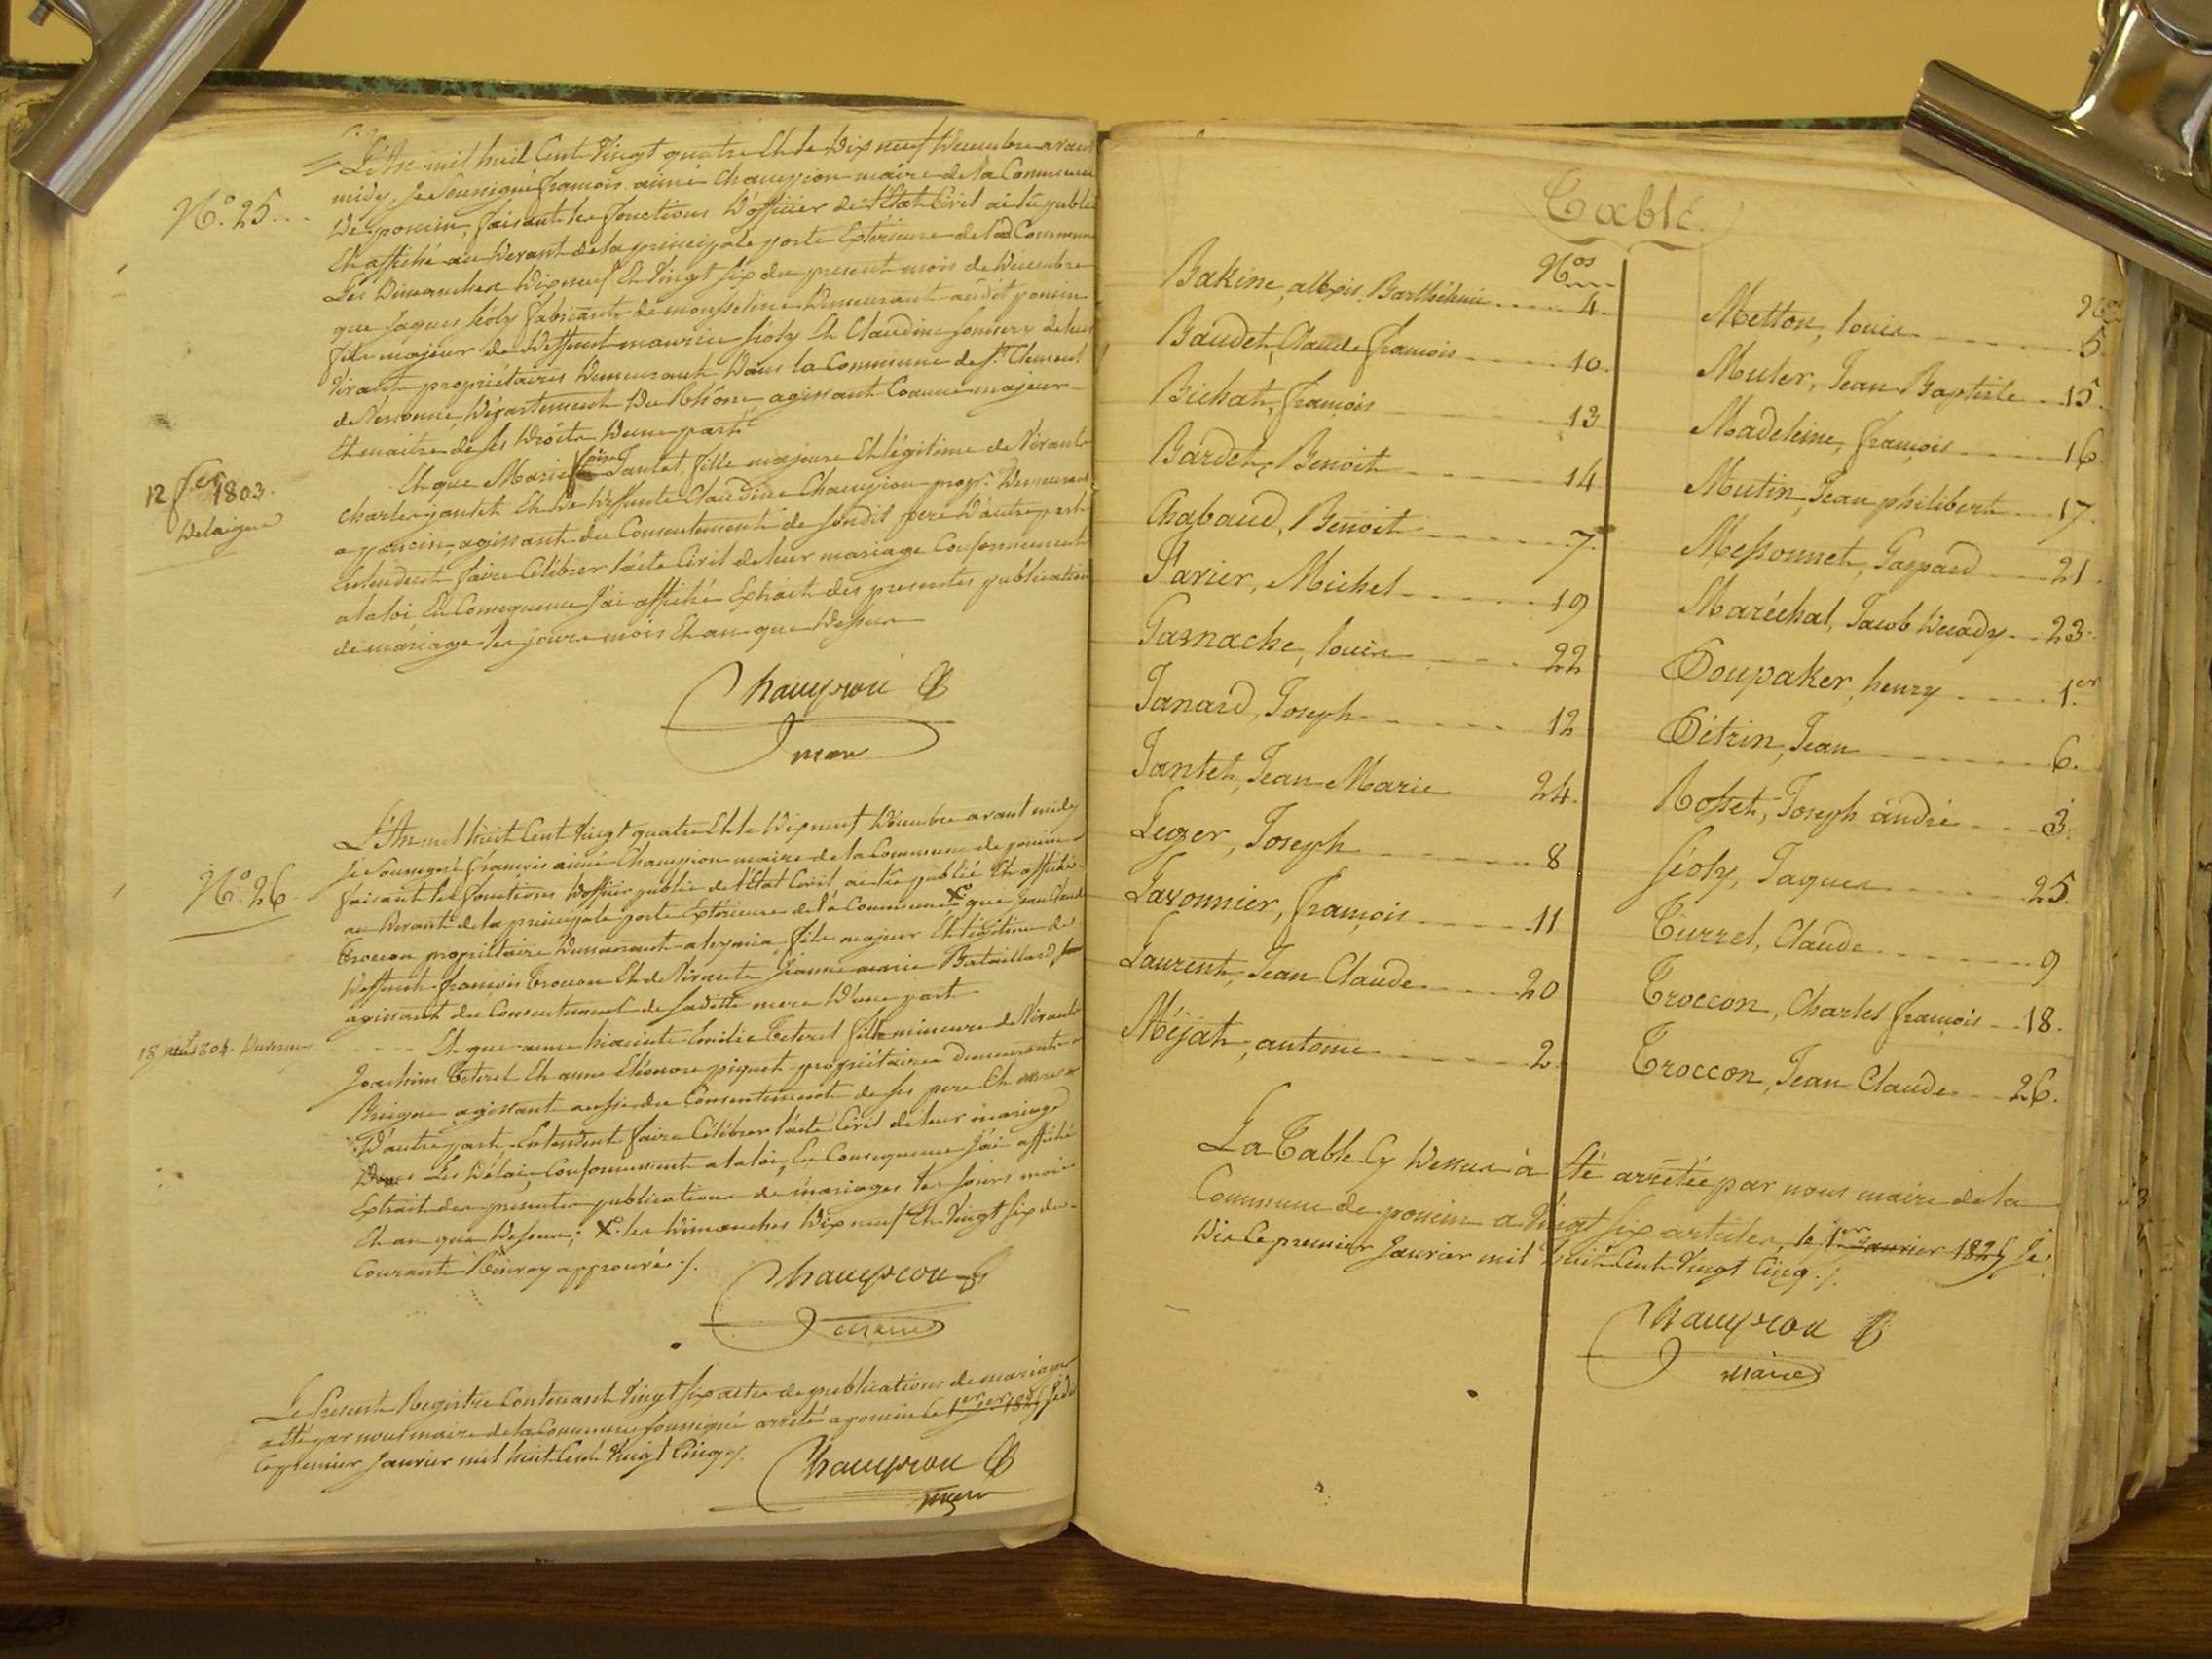 L'An mil huit Cent Vingt quatre Et le Dix neuf Decembre avant
midy, Je Soussigné françois aimé Champion maire de la Commune
N.° 25
De poncin, faisant les fonctions D'officier de l'Etat Civil ai lu publié
Et affiché au Devant de la principale porte Extérieure de lad Commune
Les Dimanches Dix neuf Et Vingt Six du present mois de Decembre
que Jaques Séoly fabricant de mousseline Demeurant audit poncin
fils majeur de Deffunt maurice Séoly Et Claudine
Vivante propriétaires Demeurant Dans la Commune de St. Clement
Département Du Rhône agissant Comme majeur
Et maitre de ses Droits D'une part
Et que Marie Jantet, fille majeure Et légitime de Vivant
12 1803.
Delaigue
Charles jantet Et De Deffunte Claudine Champion propre. Demeurant
a poncin, agissant du Consentement de sondit pere D'autre part
Entendent faire Célébrer l'acte Civil de leur mariage Conformement
a la loi, En Consequence J'ai affiché Extrait des presentes publications
de mariage les jours mois Et an que Dessus
Champion
maire
L'An mil huit Cent Vingt quatre Et le Dix neuf Décembre avant midy
Je Soussigné françois aimé Champion maire de la Commune de poncin
N.° 26
faisant les fonctions D'officier public de l'Etat Civil, ai lu publié Et affiché
au Devant de la principale porte Extérieure de la Commune X que Jean Claude
Troccon propriétaire Demeurant a leymia, fils majeur Et légitime de
Deffunt françois Troccon Et de Vivante Jeanne marie Bataillard
agissant du Consentement de sadite mere D'une part
Et que anne hiacinte Emilie Teteret fille mineure de Vivants
18 1804.
Joachim Teteret Et anne Eléonore piquet propriétaires demeurant a
agissant aussi du Consentement de ses pere Et mere
D'autre part, Entendent faire Célébrer l'acte Civil de leur mariage
Dans Les Délais Conformement a la loi, En Consequence J'ai affiché
Extrait des presentes publications de mariages les Jours mois
Et an que Dessus; X les Dimanches Dix neuf Et Vingt six du
Courant Renvoy approuvé ./.
Champion
maire
Le Present Registre Contenant Vingt six actes de publications de mariages
a été par nous maire de la Commune soussigné arrêté a poncin le 1er Jer 1825 Je dis
le premier Janvier mil huit Cent Vingt Cinq ./.
Champion
maire
Table.
Nos
Bakine, alexis Barthélemi 4.
Baudet, Claude françois 10.
Bichat, françois 13
Bardet, Benoit 14
Chabaud, Benoit 7.
Favier, Michel 19
Garnache, louis 22
Janard, Joseph 12
Jantet, Jean Marie 24.
Luzer, Joseph 8
Lavonnier, françois 11
Laurent, Jean Claude 20
Méjat, antoine 2.
Nos
Metton, louis 5.
Muler, Jean Baptiste 15.
Madeleine, françois 16.
Mutin, Jean philibert 17.
Messonnet, Gaspard 21.
Maréchal, Jacob Décady 23.
Poupaker, henry 1.er
Pétrin, Jean 6.
Rosset, Joseph andré 3.
Séoly, Jaques 25.
Turrel, Claude 9
Troccon, Charles françois 18.
Troccon, Jean Claude 26.
La Table Cy Dessus à Eté arrêtée par nous maire de la
Commune de poncin a Vingt Six articles, le 1er Janvier 1825 Je
Dis le premier Janvier mil huit Cent Vingt Cinq ./.
Champion
Maire